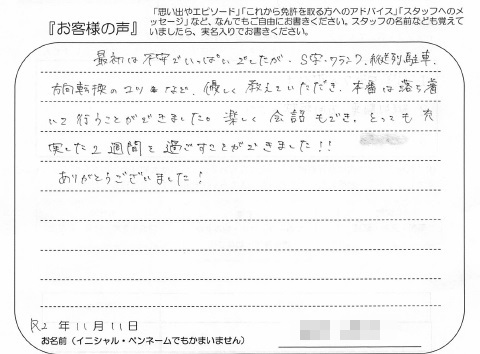 『お客様の声』
「思い出やエピソード」「これから免許を取る方へのアドバイス」「スタッフへのメッセージ」など、なんでもご自由にお書きください。スタッフの名前なども覚えていましたら、実名入りでお書きください。
最初は不安でいっぱいでしたが、S字・クランク、縦列駐車、
方向転換のコツなど、優しく教えていただき、本番は落ち着
いて行うことができました。楽しく会話もでき、とっても充
実した2週間を過ごすことができました!!
ありがとうございました!
R2年11月11日
お名前(イニシャル・ペンネームでもかまいません)